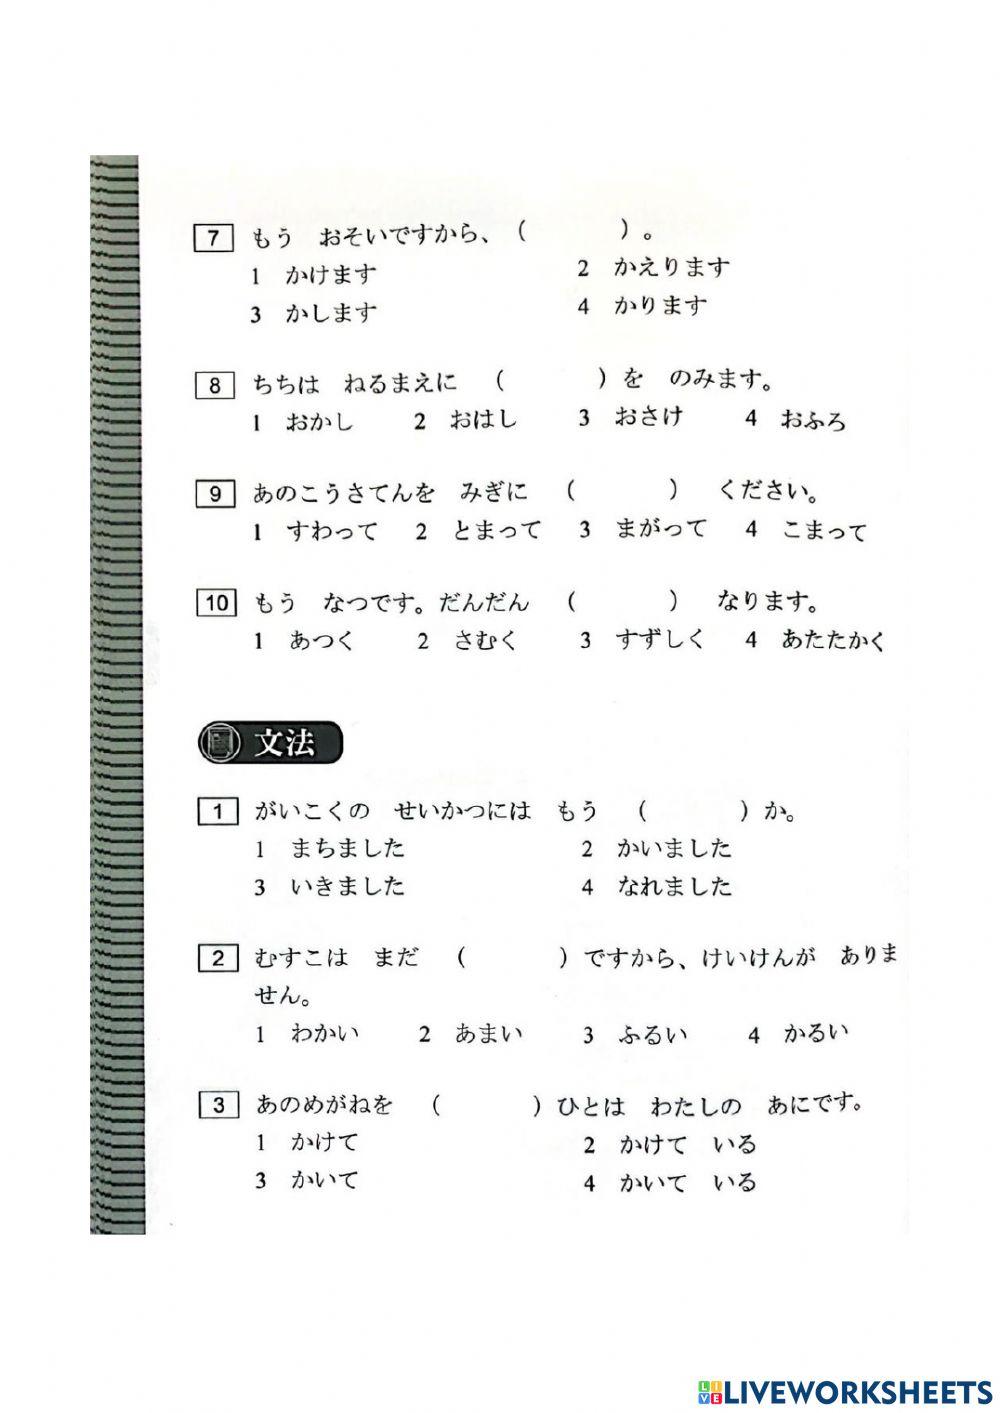 7 もう おそいですから、（ ）。
1 かけます 2 かえります
3 かします 4 かります
8 ちちは ねるまえに （ ）を のみます。
1 おかし 2 おはし 3 おさけ 4 おふろ
9 あのこうさてんを みぎに （ ） ください。
1 すわって 2 とまって 3 まがって 4 こまって
10 もう なつです。だんだん （ ） なります。
1 あつく 2 さむく 3 すずしく 4 あたたかく
文法
1 がいこくの せいかつには もう （ ）か。
1 まちました 2 かいました
3 いきました 4 なれました
2 むすこは まだ （ ）ですから、けいけんが ありま
せん。
1 わかい 2 あまい 3 ふるい 4 かるい
3 あのめがねを （ ）ひとは わたしの あにです。
1 かけて 2 かけて いる
3 かいて 4 かいて いる
LIVE LIVEWORKSHEETS